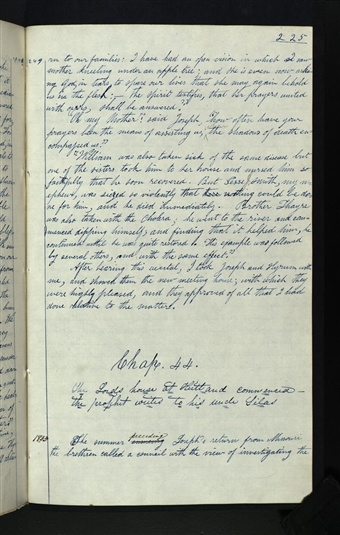 225
249 urn to our families: I have had an open vision in which I saw
mother kneeling under an apple tree; and she is even now
God, in tears, to spare our lives that she may again behold
us in the flesh;— The Spirit testifies, that her prayers united
with ours, shall be answered."
"Oh my Mother", said Joseph, "how often have your
prayers been the means of assisting us, the shadows of death en-
compassed us."
"William was also taken sick of the same disease but
one of the sisters took him to her house and nursed him so
faithfully that he soon recovered. But Jesse Smith, my
was seized so violently that nothing could be do-
ne for him, and he died immediately. Brother Thayre
was also taken with the Cholera; he went to the river and com-
menced dipping himself, and finding that it helped him, he
continued until he was quite restored to His example was followed
by several others, and with the same effect."
After hearing this recital, I took Joseph and Hyrum with
me, and showed them the new meeting house; with which they
were highly pleased, and they approved of all that I had
done relative to the matter.
Chap. 44.
The Lord's house at Kirtland commenced —
The prophet writes to his uncle Silas
The summer preceding Joseph's return from Missouri
the brethren called a council with the view of investigating the